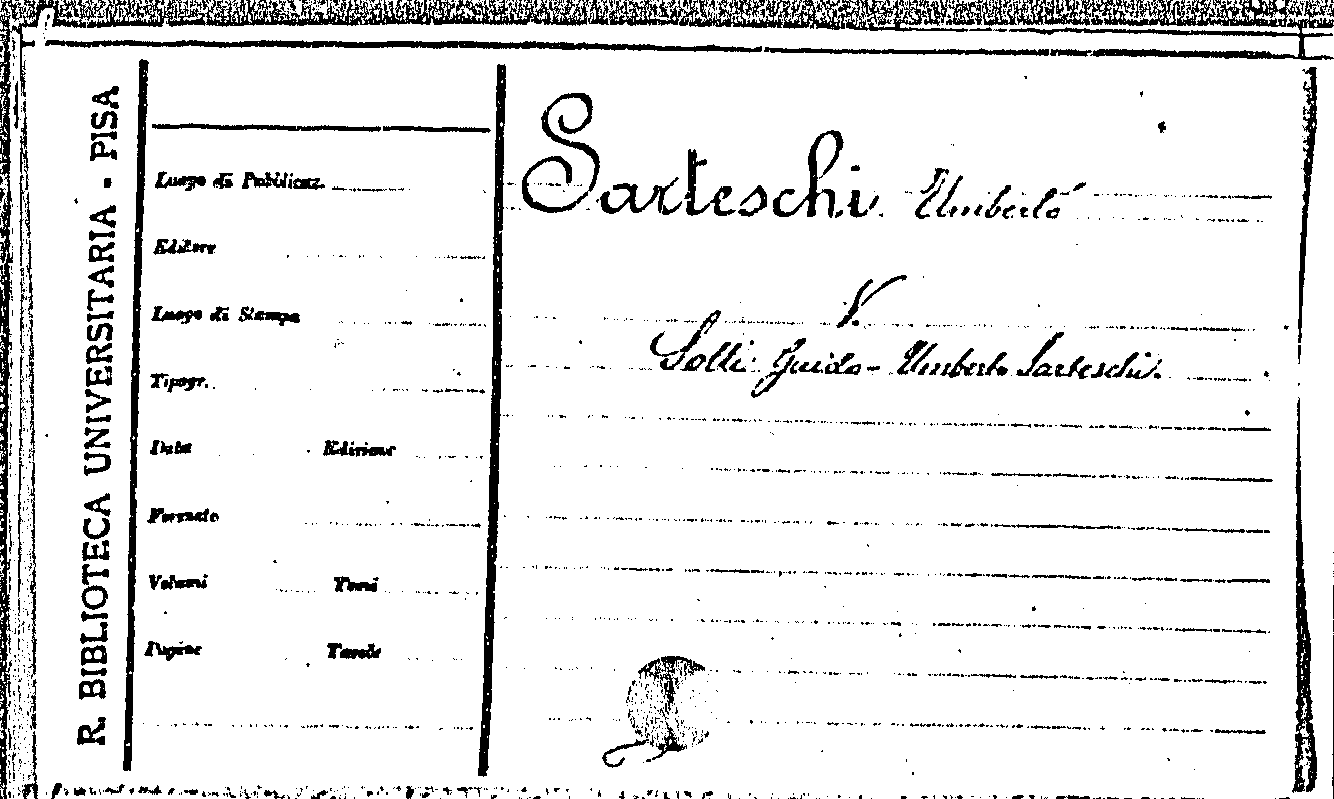 R. BIBLIOTECA UNIVERSITARIA - PISA
Luogo di Pubblicaz.
Editore
Luogo di Stampa
Tipogr.
Data Edizione
Formato
Volumi Tomi
Pagine Tavole
Sarteschi Umberto
V.
Sotti Guido - Umberto Sarteschi.